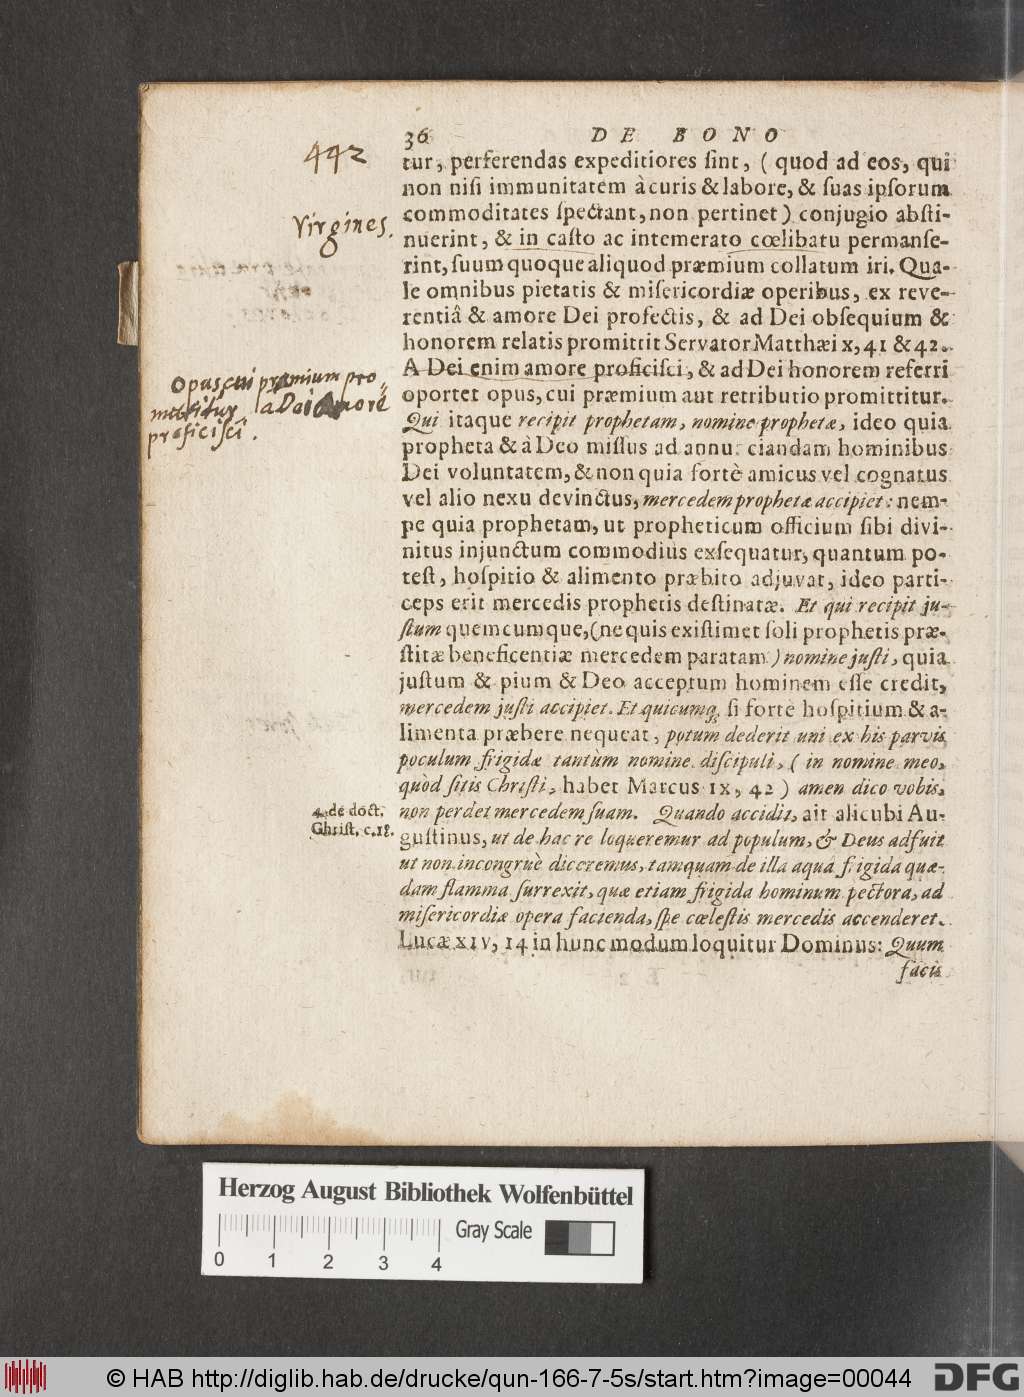 442
36 DE BONO
tur, perferendas expeditiores ſint, ( quod ad eos, qui
non niſi immunitatem à curis & labore, & ſuas ipſorum
commoditates ſpectant, non pertinet ) conjugio abſti-
Virgines.
nuerint, & in caſto ac intemerato cœlibatu permanſe-
rint, ſuum quoque aliquod præmium collatum iri. Qua-
le omnibus pietatis & miſericordiæ operibus, ex reve-
rentiâ & amore Dei profectis, & ad Dei obſequium &
honorem relatis promittit Servator Matthæi x, 41 & 42.
A Dei enim amore proficiſci, & ad Dei honorem referri
Opus cui præmium pro-
mittitur, a Dei amore
proficiſci.
oportet opus, cui præmium aut retributio promittitur.
Qui itaque recipit prophetam, nomine prophetæ, ideo quia
propheta & à Deo miſſus ad annu ciandam hominibus
Dei voluntatem, & non quia fortè amicus vel cognatus
vel alio nexu devinctus, mercedem prophetæ accipiet: nem-
pe quia prophetam, ut propheticum officium ſibi divi-
nitus injunctum commodius exſequatur, quantum po-
teſt, hoſpitio & alimento præbito adjuvat, ideo parti-
ceps erit mercedis prophetis deſtinatæ. Et qui recipit ju-
ſtum quemcumque, (ne quis exiſtimet ſoli prophetis præ-
ſtitæ beneficentiæ mercedem paratam) nomine juſti, quia
juſtum & pium & Deo acceptum hominem eſſe credit,
mercedem juſti accipiet. Et quicumq; ſi fortè hoſpitium & a-
limenta præbere nequeat, potum dederit uni ex his parvis
poculum frigidæ tantùm nomine diſcipuli, ( in nomine meo,
quòd ſitis Chriſti, habet Marcus IX, 42 ) amen dico vobis,
4. de doct.
Chriſt. c. 18.
non perdet mercedem ſuam. Quando accidit, ait alicubi Au-
guſtinus, ut de hac re loqueremur ad populum, & Deus adfuit
ut non incongruè diceremus, tamquam de illa aqua frigida quæ-
dam flamma ſurrexit, quæ etiam frigida hominum pectora, ad
miſericordiæ opera facienda, ſpe cœleſtis mercedis accenderet.
Lucæ XIV, 14 in hunc modum loquitur Dominus: Quum
facis
Herzog August Bibliothek Wolfenbüttel
Gray Scale
0 1 2 3 4
© HAB http://diglib.hab.de/drucke/qun-166-7-5s/start.htm?image=00044
DFG